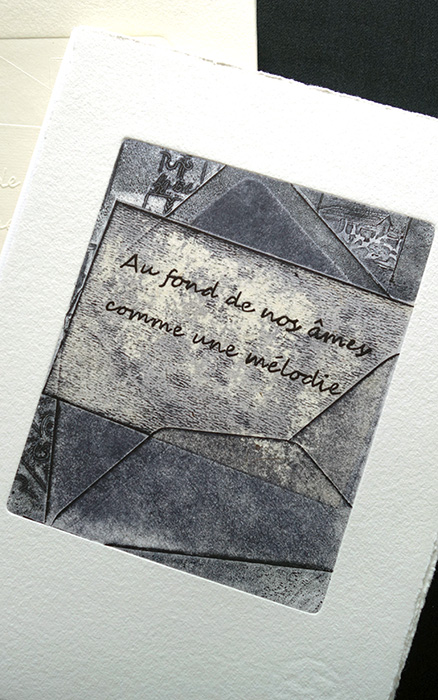 Au fond de nos âmes
comme une mélodie